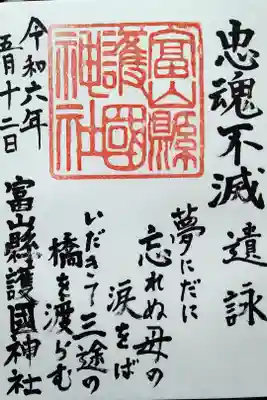 忠魂不滅 遺詠
富山縣護國神社
夢にだに
忘れぬ母の
涙をば
いだきて三途の
橋を渡らむ
富山縣護國神社
令和六年
五月十二日